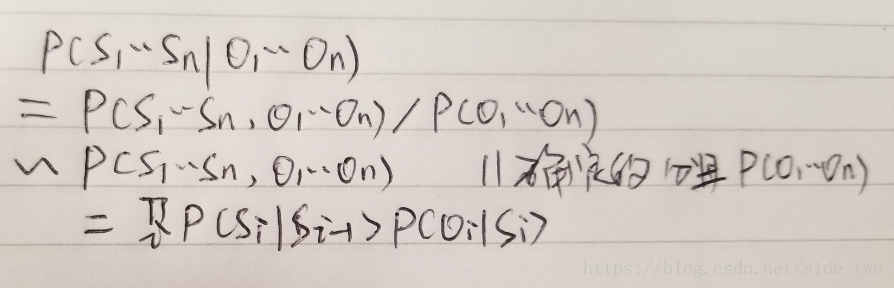 P(S₁··Sn|O₁··On)
= P(S₁··Sn, O₁··On)/P(O₁··On)
∽ P(S₁··Sn, O₁··On) // 确定的 P(O₁··On)
= ∏i P(Si|Si-1>P(Oi|Si>
https://blog.csdn.net/side_two